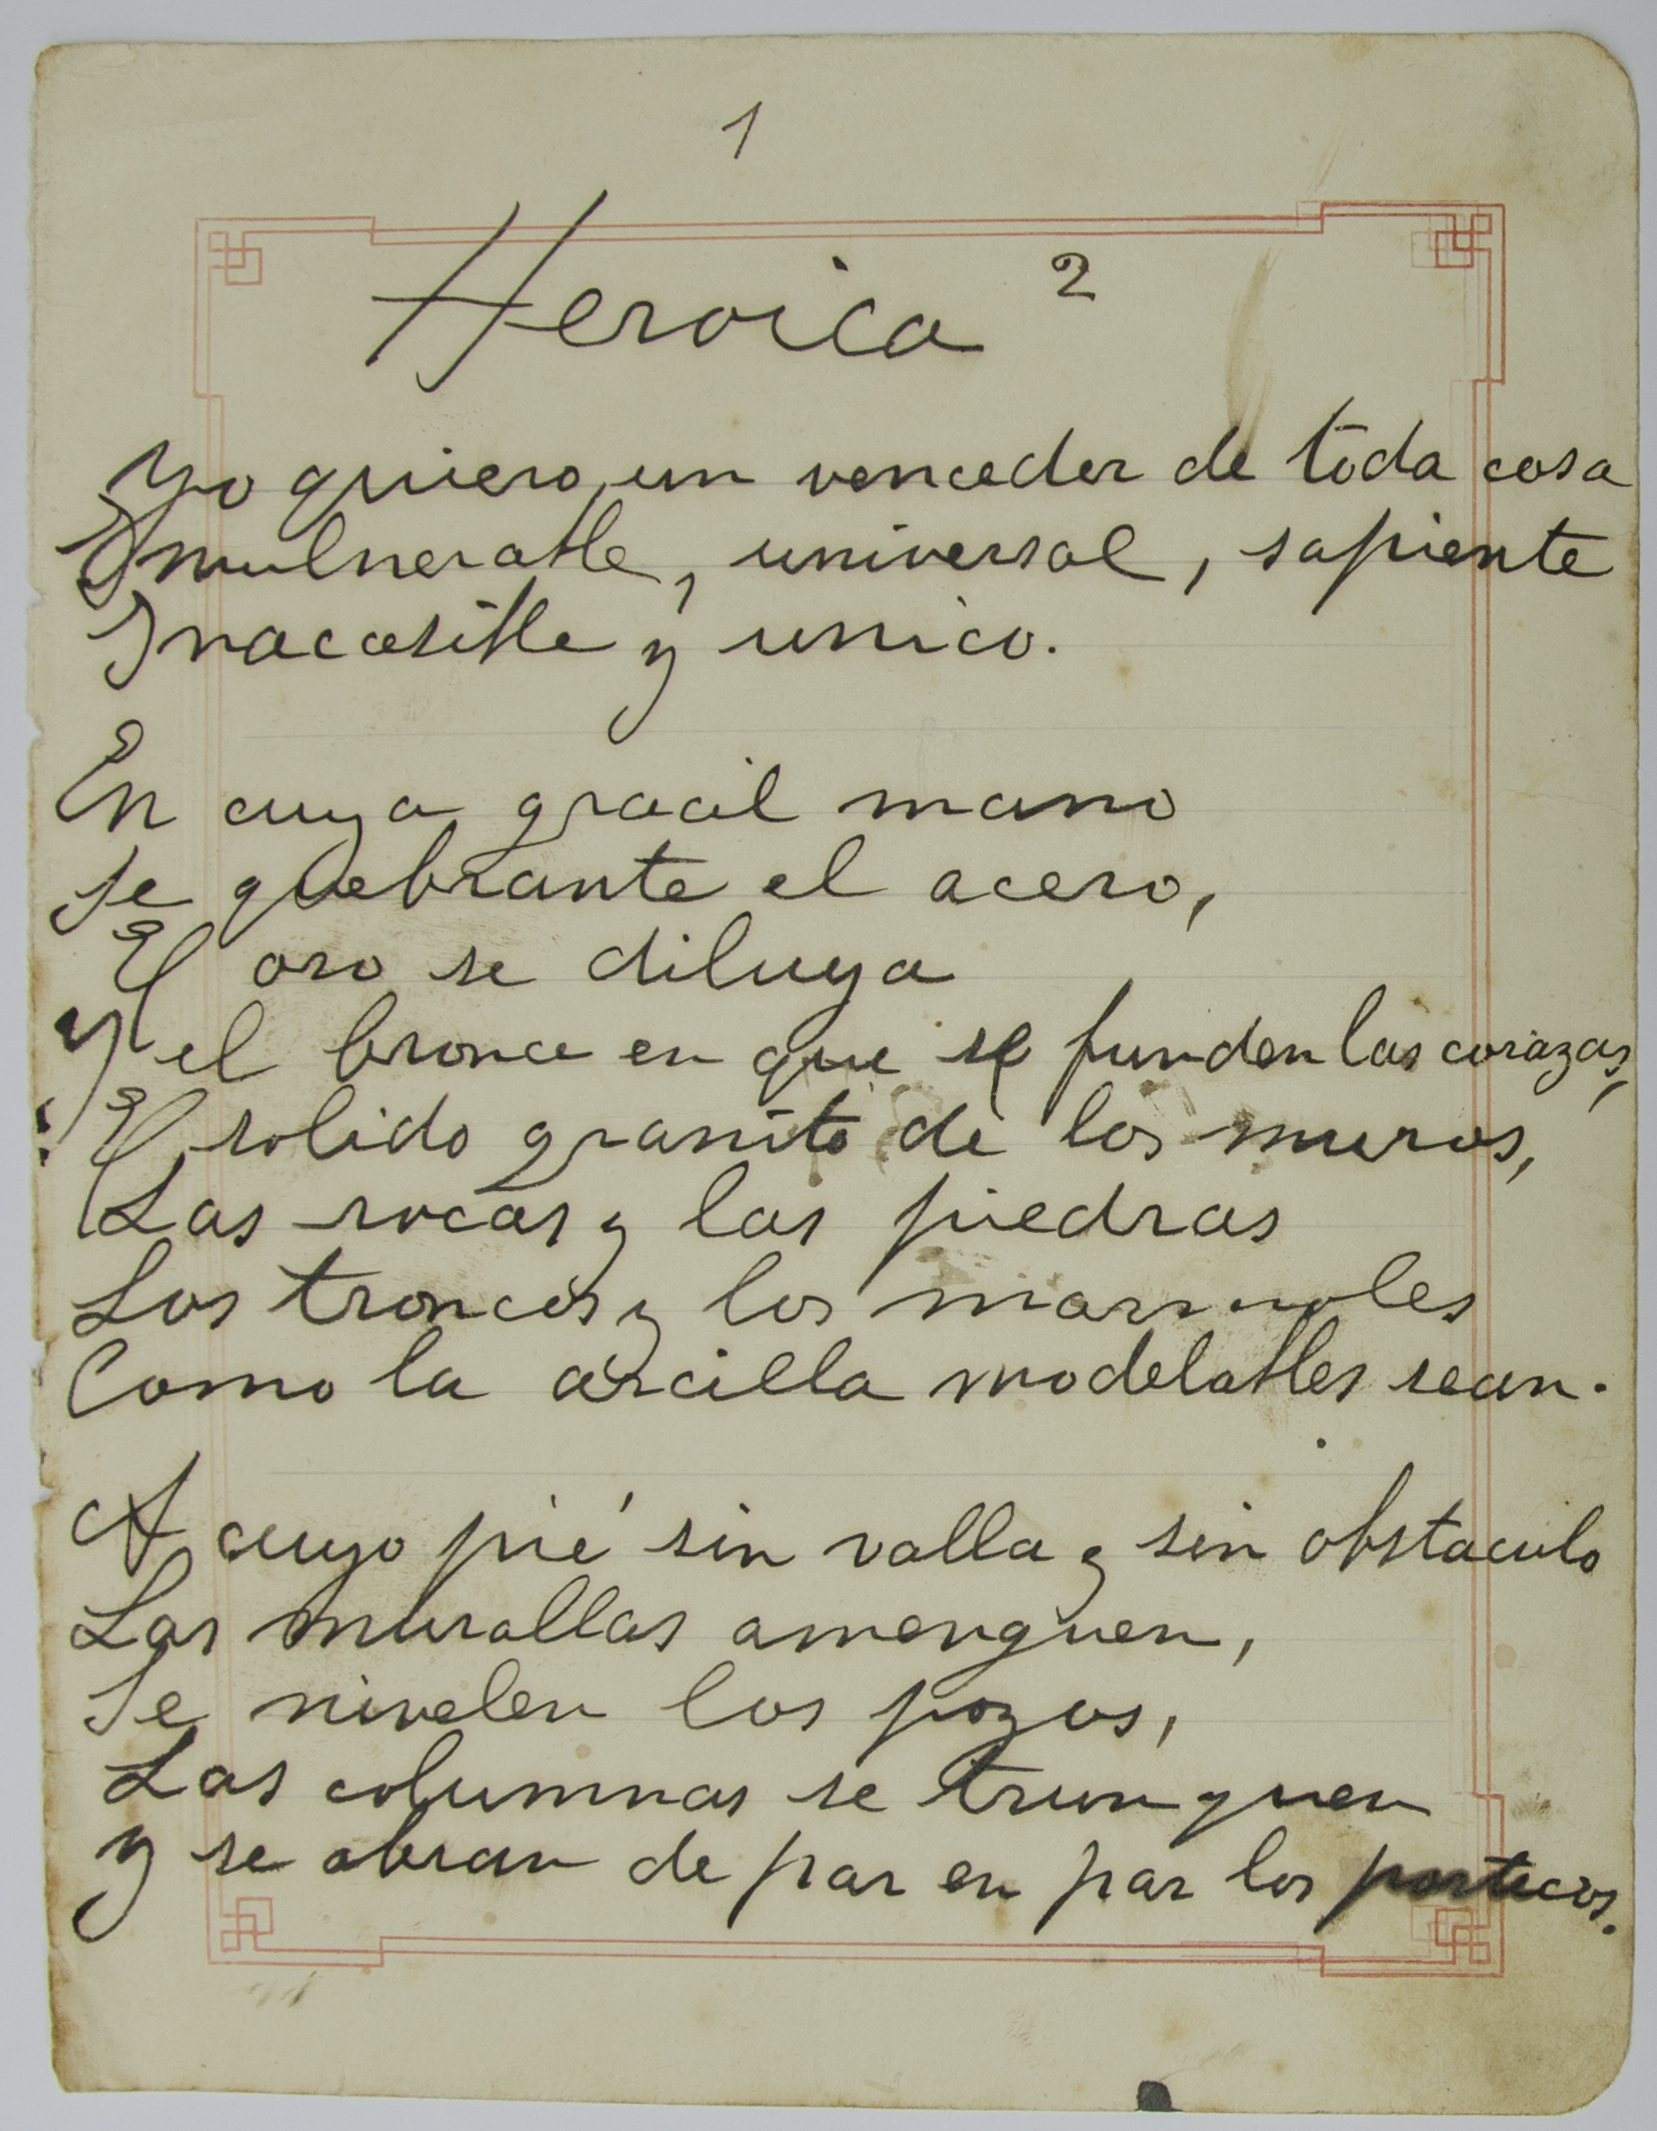 1
Heroica 2
Yo quiero un vencedor de toda cosa
Invulnerable, universal, sapiente
Inaccesible y unico.
En cuya gracil mano
Se quebrante el acero,
El oro se diluya
Y el bronce en que se funden las corazas,
El solido granito de los muros,
Las rocas y las piedras
Los troncos y los marmoles
Como la arcilla modelables sean.
A cuyo pié sin valla y sin obstaculo
Las murallas amenguen,
Se nivelen los pozos,
Las columnas se trunquen
Y se abran de par en par los porticos.